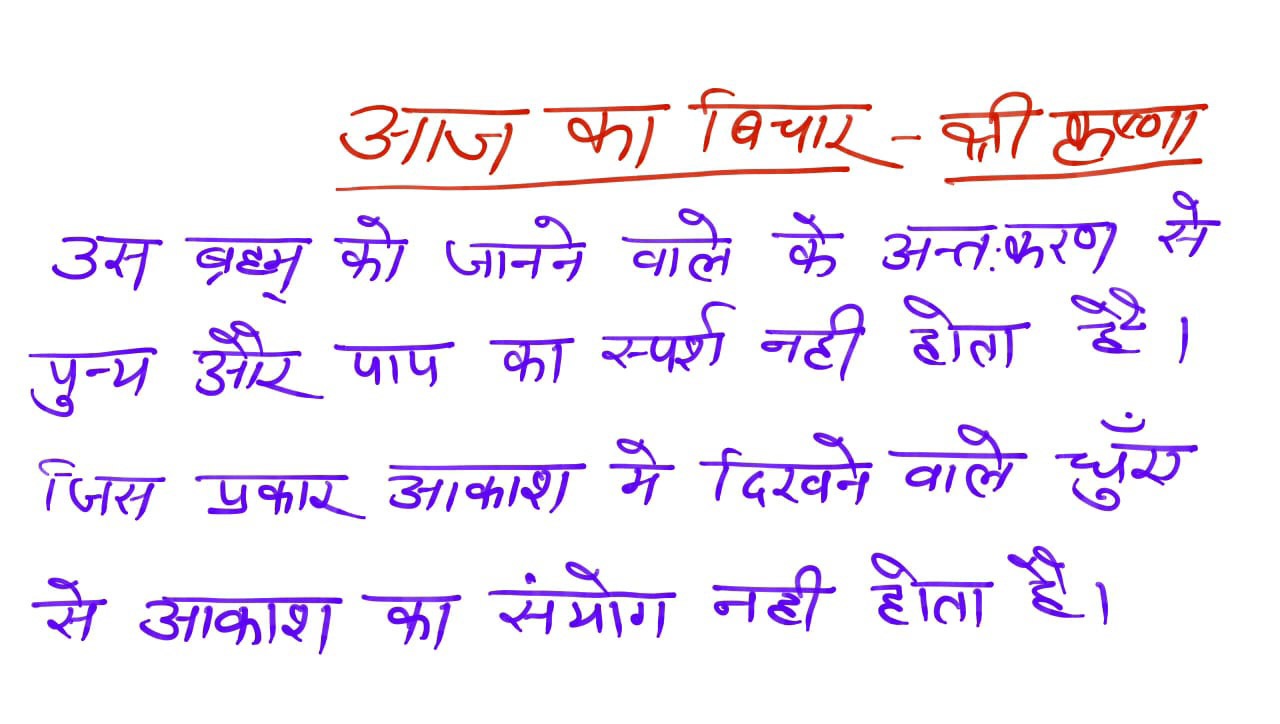 आज का बिचार - श्री कृष्णा
उस ब्रह्म् को जानने वाले के अन्तःकरण से
पुन्य और पाप का स्पर्श नही होता है।
जिस प्रकार आकाश मे दिखने वाले धुँए
से आकाश का संयोग नही होता है।